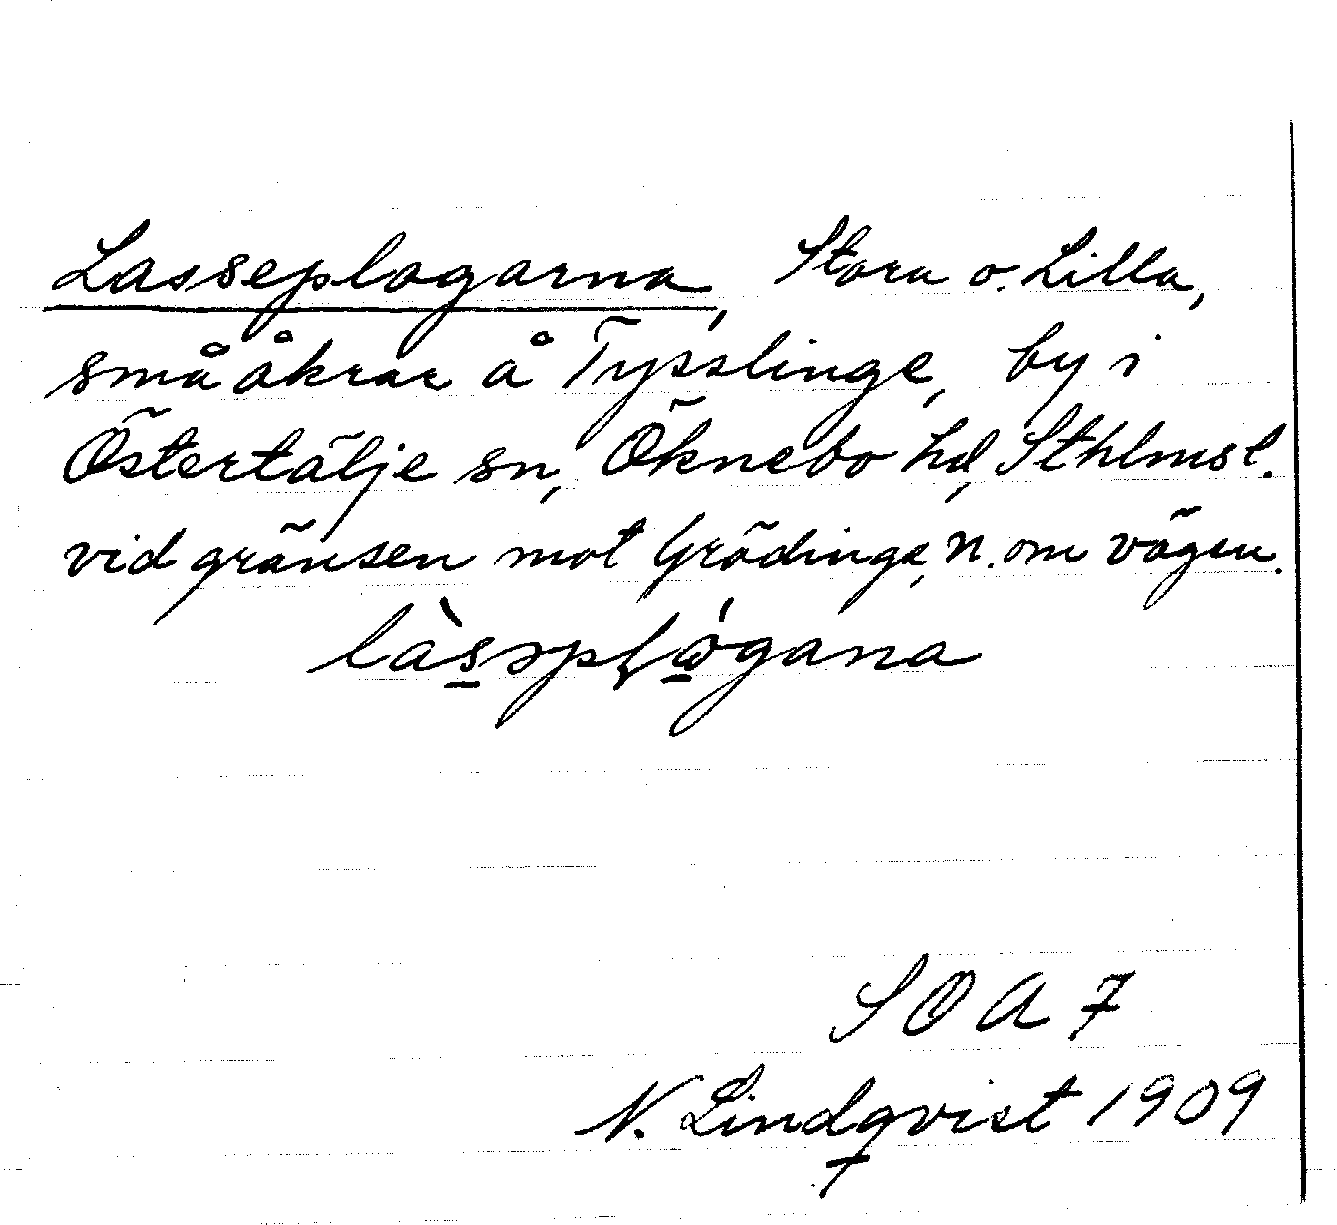 Lasseplogarna, Stora o. Lilla,
små åkrar å Tysslinge, by i
Östertälje sn, Öknebo hd, Sthlmsl.
vid gränsen mot Grödinge, N. om vägen.
SOA 7
N. Lindqvist 1909